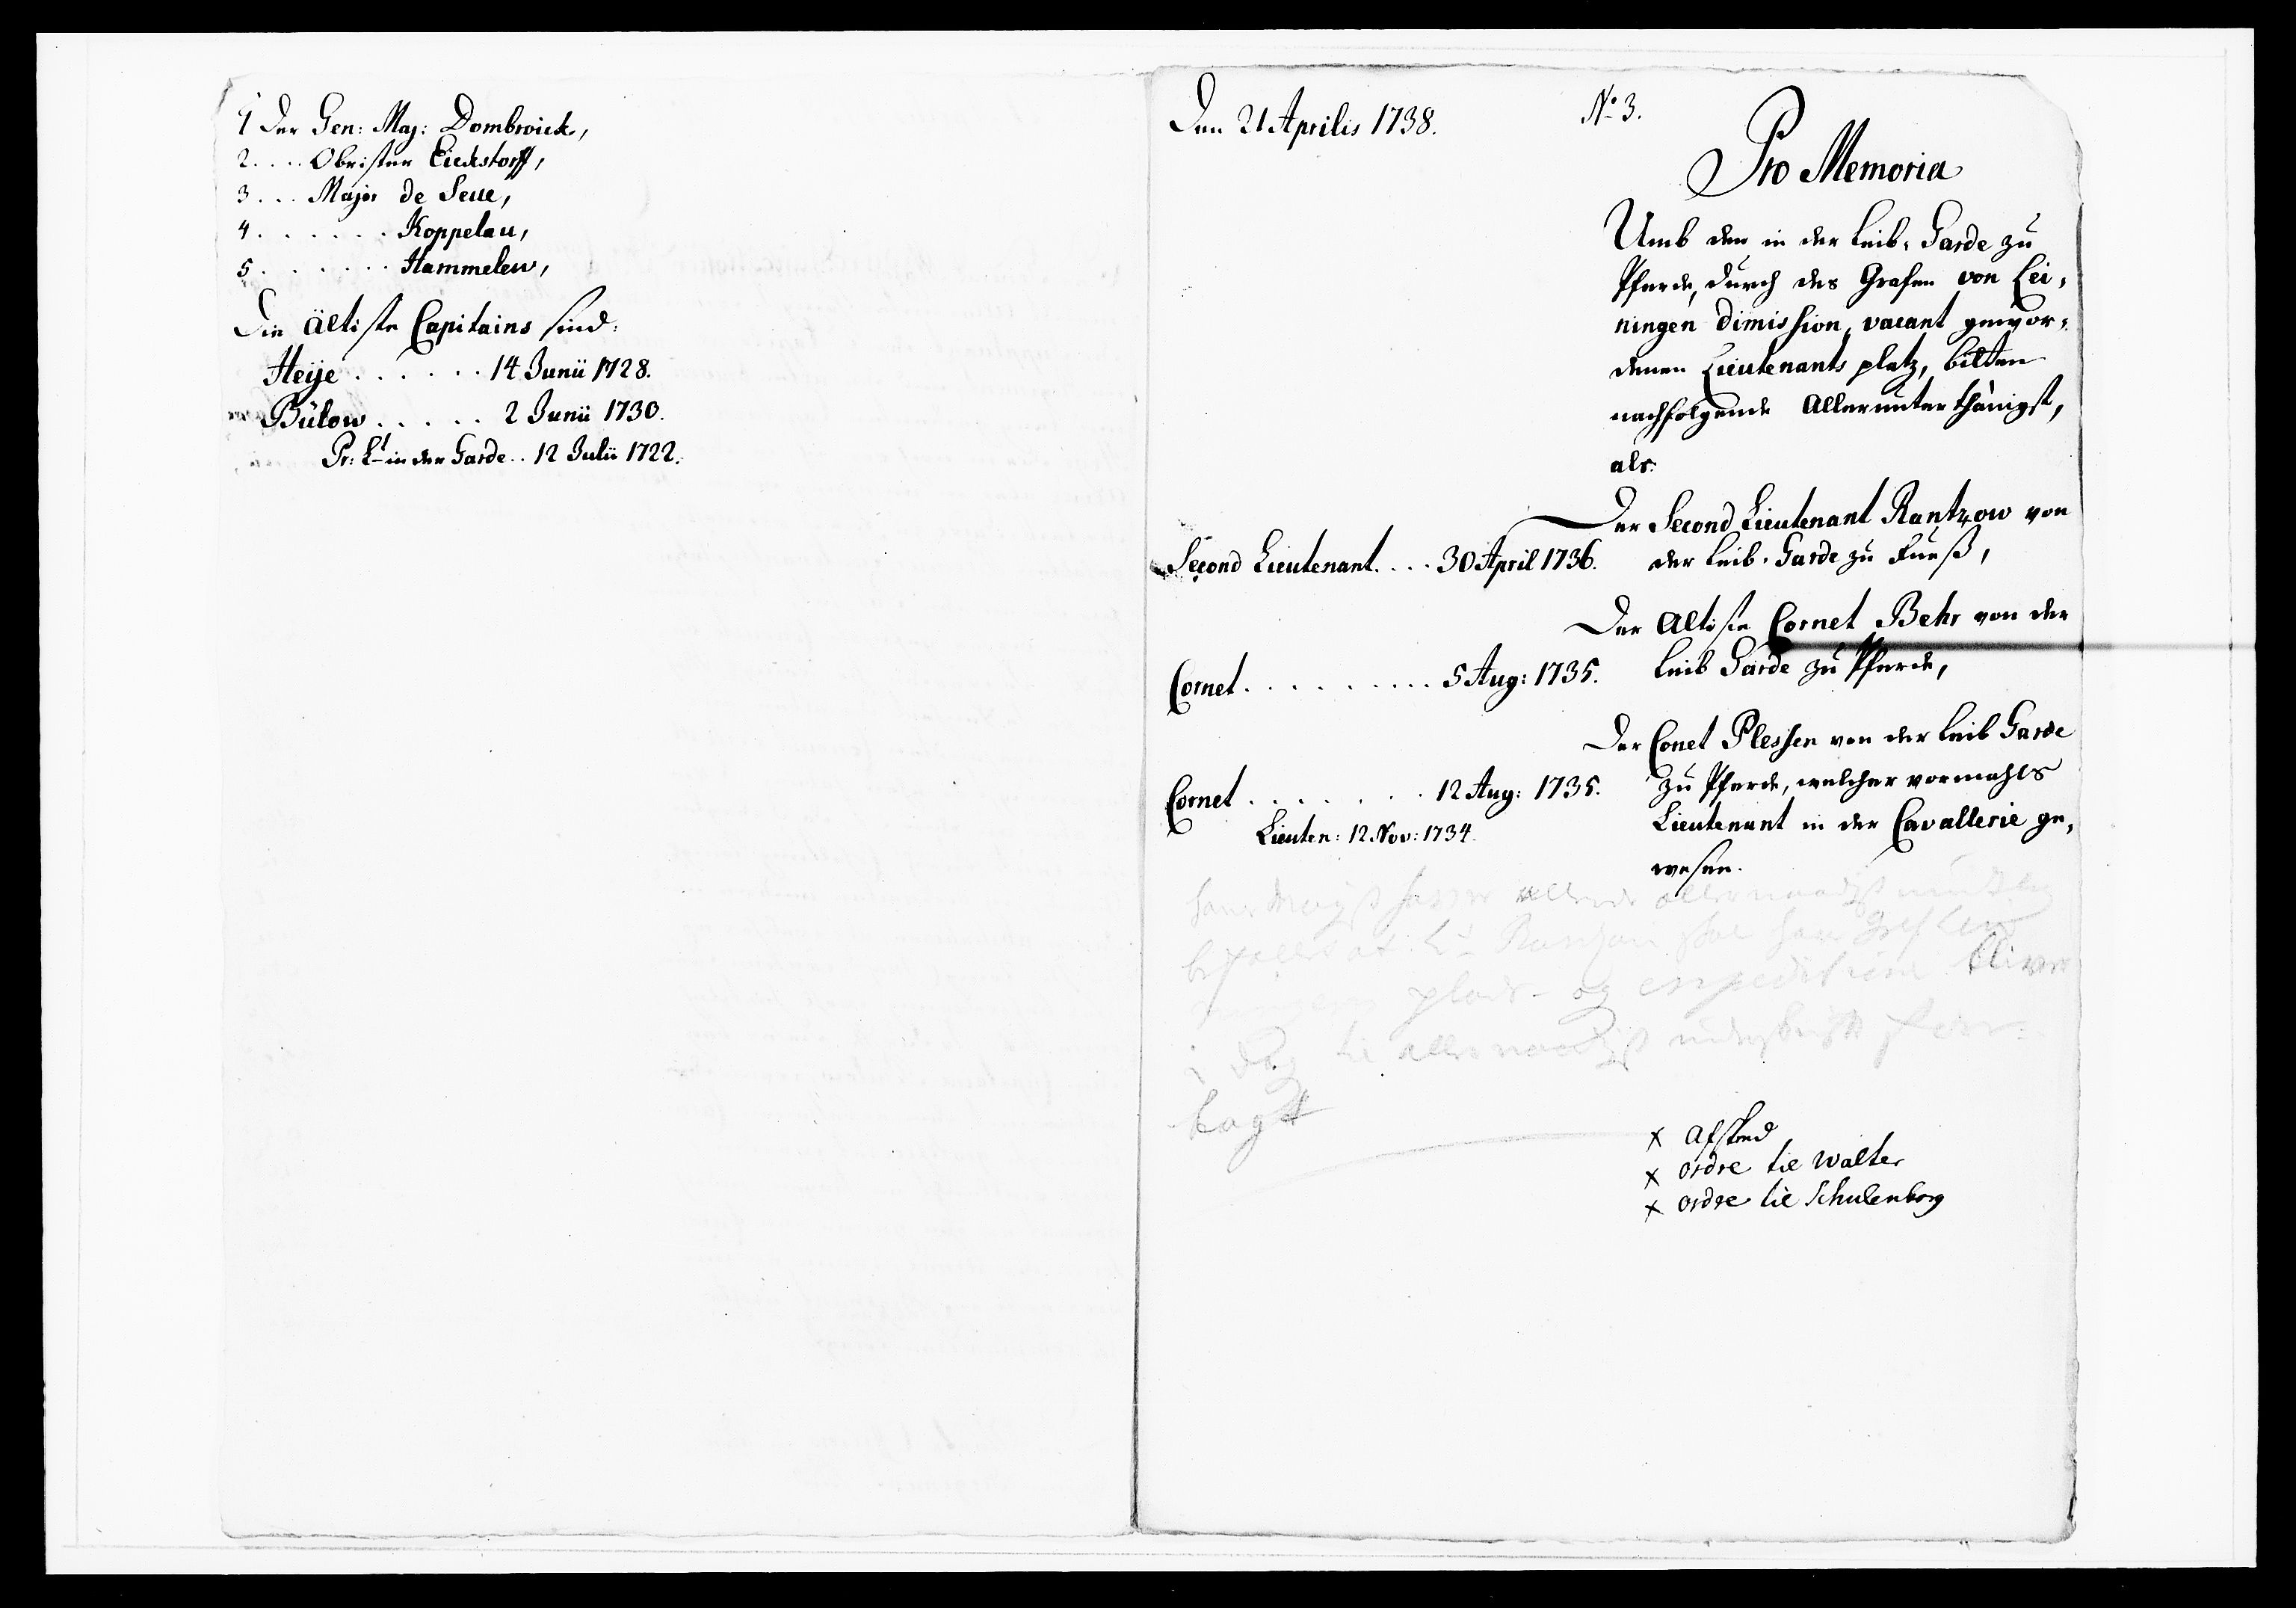 1 Der Gen: Maj: Dombroick,
2 .... Obrister Eickstorff,
3 ... Major de Seue,
4 ...... Koppelau,
5 ...... Hammelew,
Die Ältiste Capitains sind:
Heÿe ...... 14 Junii 1728.
Bülow ..... 2 Junii 1730.
Pr: Lt in der Garde .. 12 Julii 1722.
Den 21 Aprilis 1738.
No 3.
Pro Memoria
Umb den in der Leib-Garde zu
Pferde, durch des Grafen von Lei-
ningen dimission, vacant gewor-
denen Lieutenants platz, bitten
nachfolgende Allerunterthänigst,
als:
Der Second Lieutenant Rantzow von
Second Lieutenant .... 30 April 1736. der Leib-Garde zu Fueß,
Der Altiste Cornet Behr von der
Cornet .......... 5 Aug: 1735. Leib Garde zu Pferde,
Der Conet Plessen von der Leib Garde
Cornet ........ 12 Aug: 1735. zu Pferde, welcher vormahls
Lieuten: 12 Nov: 1734. Lieutenant in der Cavallerie ge-
wesen.
hans Mayst allernaadigst
befallet at Lt Rantzau skal hau
plads - og expeditione bliver
i dag til allernaadigst underskrift fore-
lagt
x Afskeed
x ordre til Walter
x ordre til Schulenborg